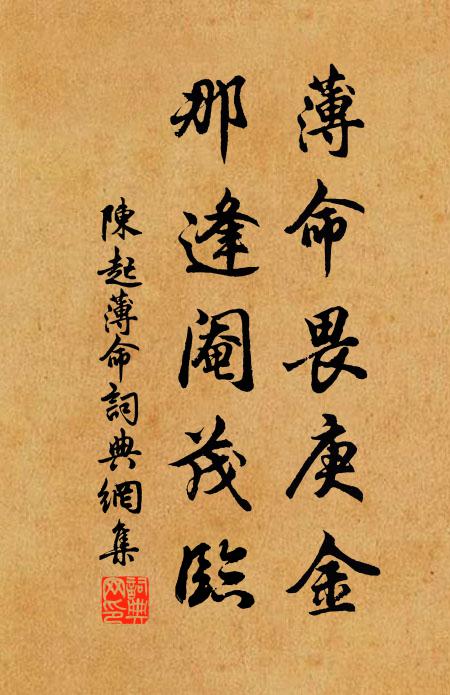 薄命畏庚金
那逢阉茂臨
陳起薄命詞典網集
詞典網印